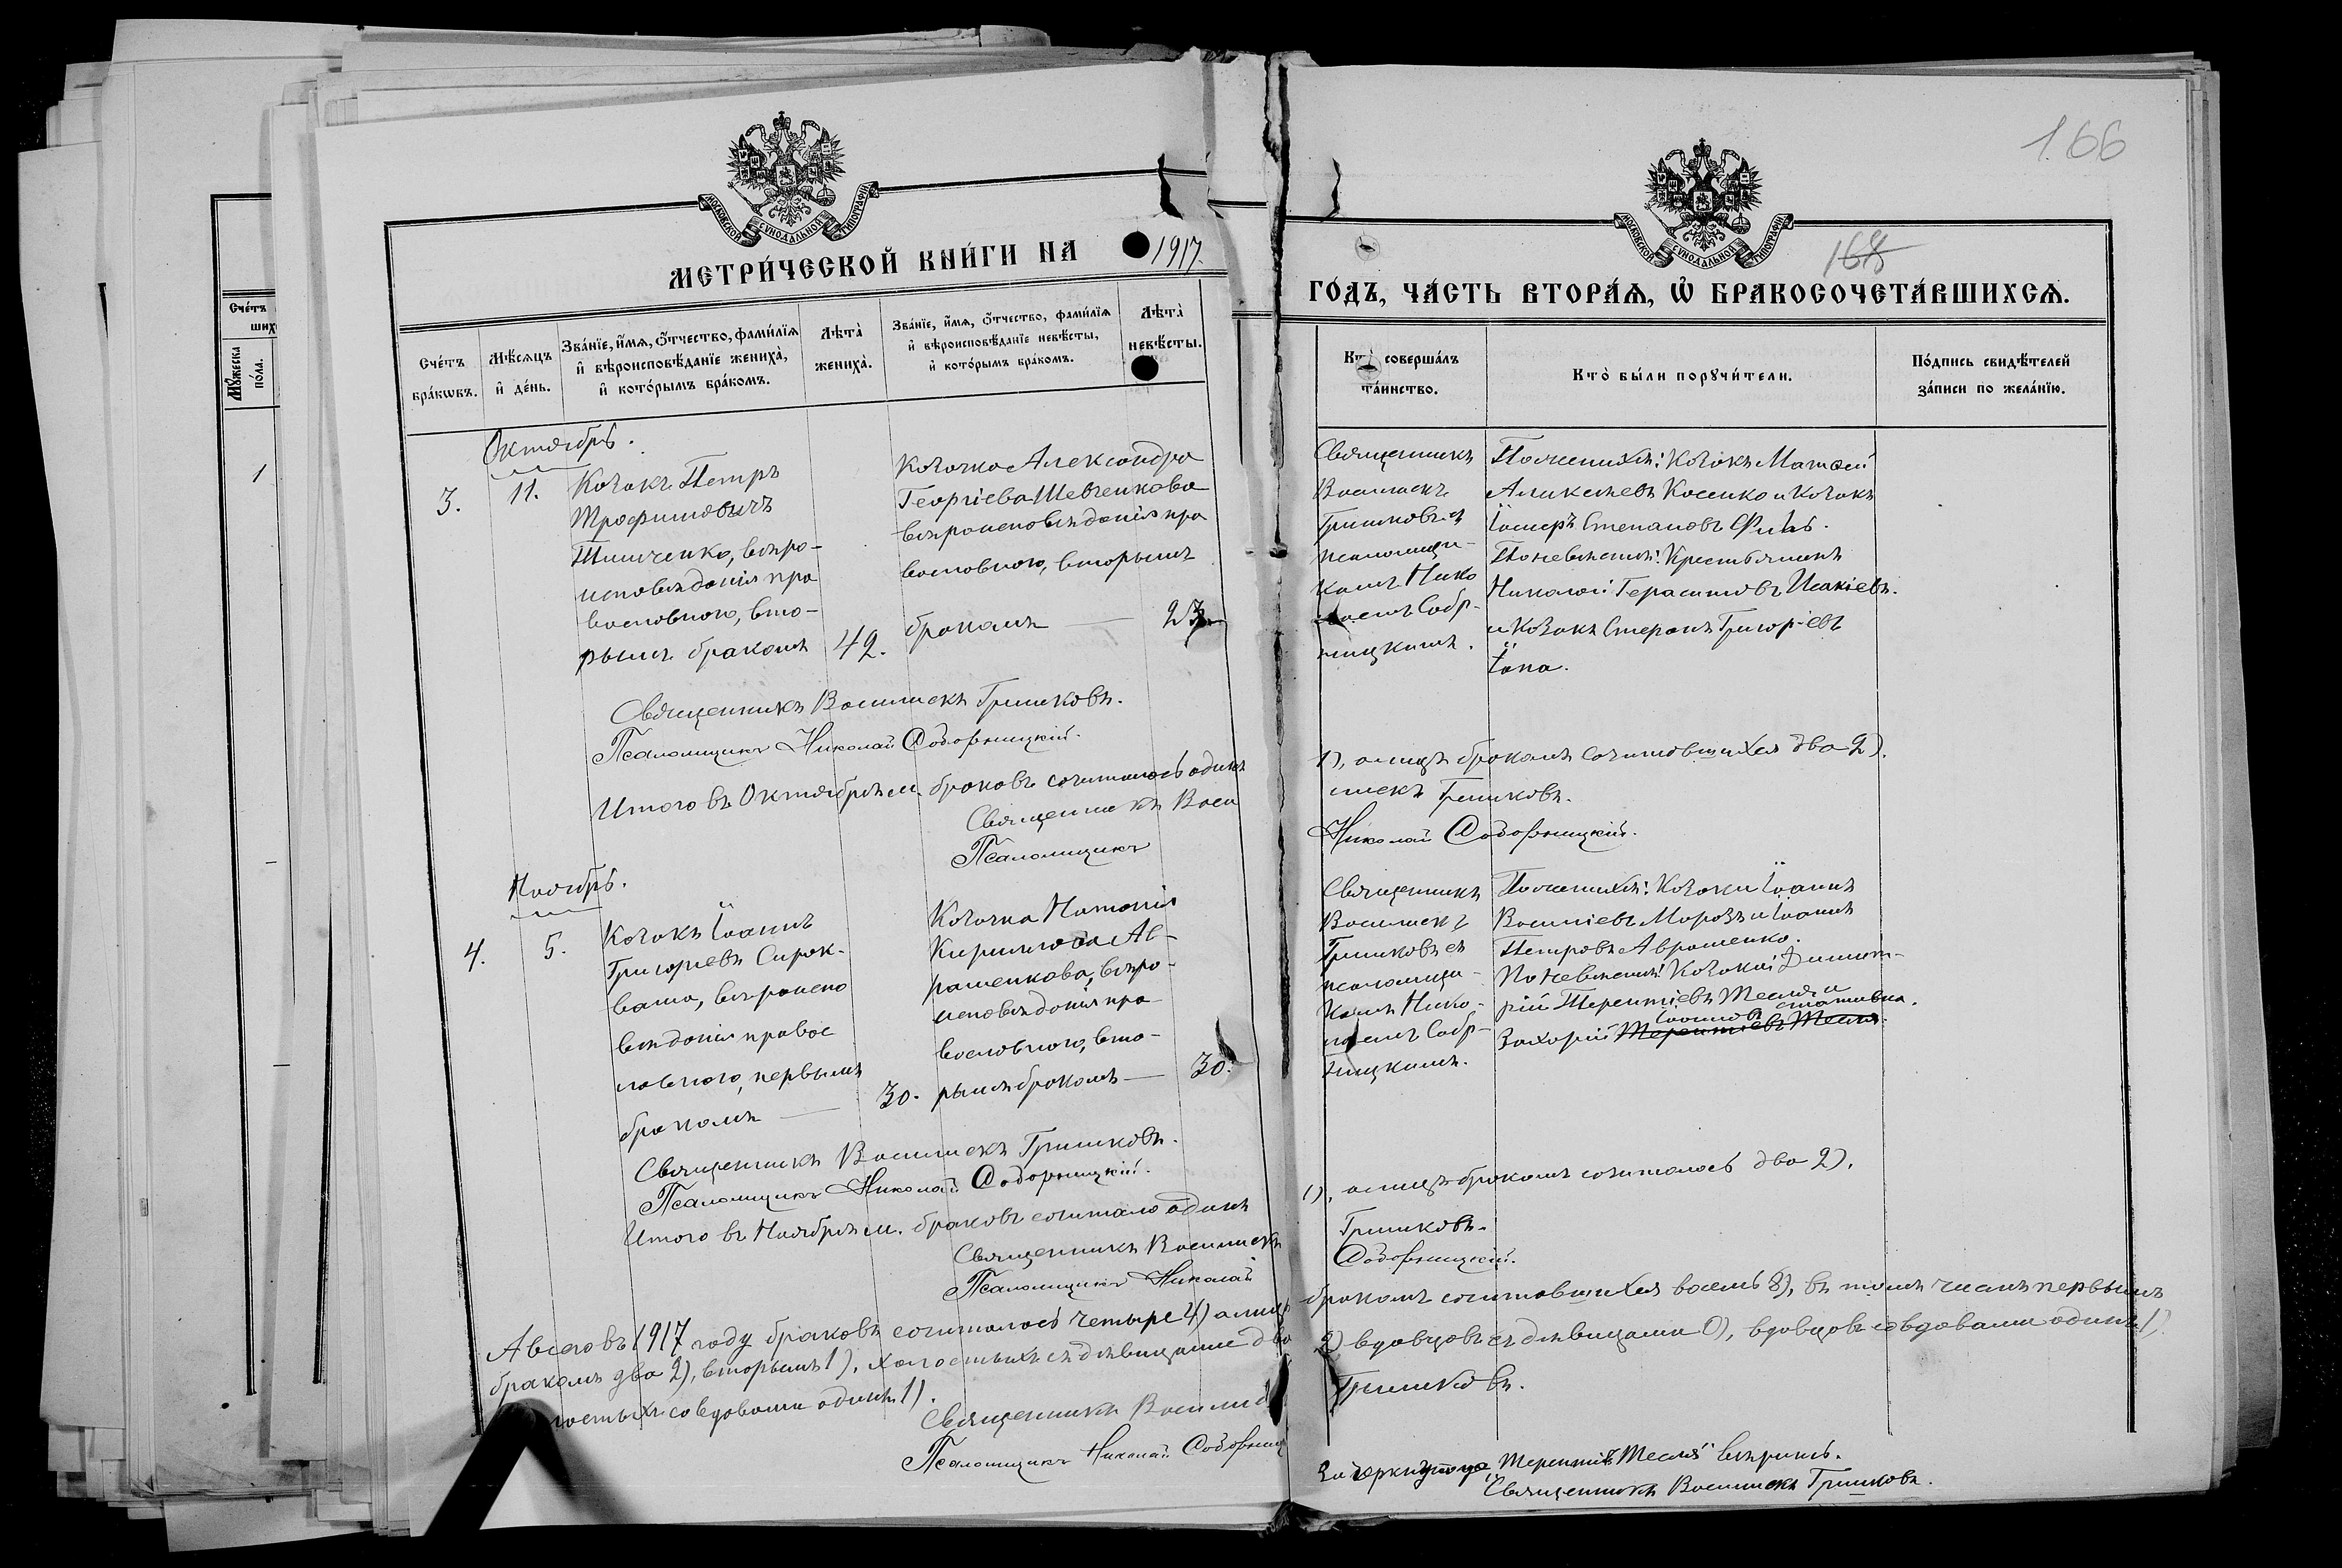 166
МОСКОВСКОЙ СѴНОДАЛЬНОЙ ТИПОГРАФІИ
МОСКОВСКОЙ СѴНОДАЛЬНОЙ ТИПОГРАФІИ
МЕТРИ́ЧЕСКОЙ КНИ́ГИ НА 1917.
ГО́ДЪ, ЧА́СТЬ ВТОРА́Ѧ, Ѡ҆ БРАКОСОЧЕТА́ВШИХСѦ.
Сче́тъ бра́кѡвъ.
Мѣ́сѧцъ и҆ де́нь.
Зва́нїе, и҆́мѧ, ѻ҆́тчество, фами́лїѧ
и҆ вѣроисповѣ́данїе жениха̀,
и҆ кото́рымъ бра́комъ.
Лѣта̀ жениха̀.
Зва́нїе, и҆́мѧ, ѻ҆́тчество, фами́лїѧ
и҆ вѣроисповѣ́данїе невѣ́сты,
и҆ кото́рымъ бра́комъ.
Лѣта̀ невѣ́сты.
совершáлъ та́инство.
Кто̀ бы́ли порꙋчи́тели.
По́дпись свидѣ́телей
за́писи по жела́нїю.
Октябрь.
3.
11.
Козакъ Петръ
Трофимовичъ
Тимченко, вѣро-
исповѣданія пра
вославного, вто-
рымъ бракомъ
42.
Козачка Александра
Георгіева Шевченкова
вѣроисповѣданія пра
вославного, вторымъ
бракомъ —
Священникъ
Василискъ
Гришковъ съ
псаломщи-
комъ Нико
лаемъ Собр-
ницкимъ.
По женихѣ: Козакъ Матѳей
Алексѣевъ Косенко и Козакъ
Іосифъ Степановъ
По невѣстѣ: Крестьянинъ
Николай Герасимовъ
и Козакъ Стефанъ Григорьевъ
Священникъ Василискъ Гришковъ.
Псаломщикъ Николай Собрницкій.
Итого въ Октябрѣ м. браковъ сочиталось одинъ
1), а лицъ бракомъ сочитовшихся два 2).
Священникъ Васи
лискъ Гришковъ.
Псаломщикъ
Николай Собрницкій.
Ноябрь.
4.
5.
Козакъ Іоаннъ
Григорьевъ Сирок-
ваша, вѣроиспо
вѣданія правос
лавного, первымъ
бракомъ —
30.
Козачка Наталія
Кириллова Ав-
раменкова, вѣро-
исповѣданія пра
вославного, вто-
рымъ бракомъ —
30.
Священникъ
Василискъ
Гришковъ съ
псаломщи-
комъ Нико-
лаемъ Собр-
ницкимъ.
По женихѣ: Козаки Іоаннъ
Василіевъ Морозъ и Іоаннъ
Петровъ Авраменко.
По невѣстѣ: Козаки Димит-
рій Терентіевъ Тесля и
Захарій Терентіевъ Тесля.
Священникъ Василискъ Гришковъ.
Псаломщикъ Николай Собрницкій.
Итого въ Ноябрѣ м. браковъ сочитало одинъ
1), а лицъ бракомъ сочиталось два 2).
Священникъ Василискъ
Гришковъ.
Псаломщикъ Николай
Собрницкій.
А всего въ 1917 году браковъ сочиталось четыре 4) а лицъ
бракомъ сочитавшихся восемь 8), въ томъ числѣ первымъ
бракомъ два 2), вторымъ 1), холостыхъ съ дѣвицами два
2) вдовцовъ съ дѣвицами 0), вдовцовъ со вдовами одинъ 1),
со вдовами одинъ 1).
Священникъ
Гришковъ.
Псаломщикъ Николай
Зачеркнутого „Терентіевъ Тесля" вѣрить.
Священникъ Василискъ Гришковъ.
Сче́тъ
Мꙋ́жеска по́ла.
1